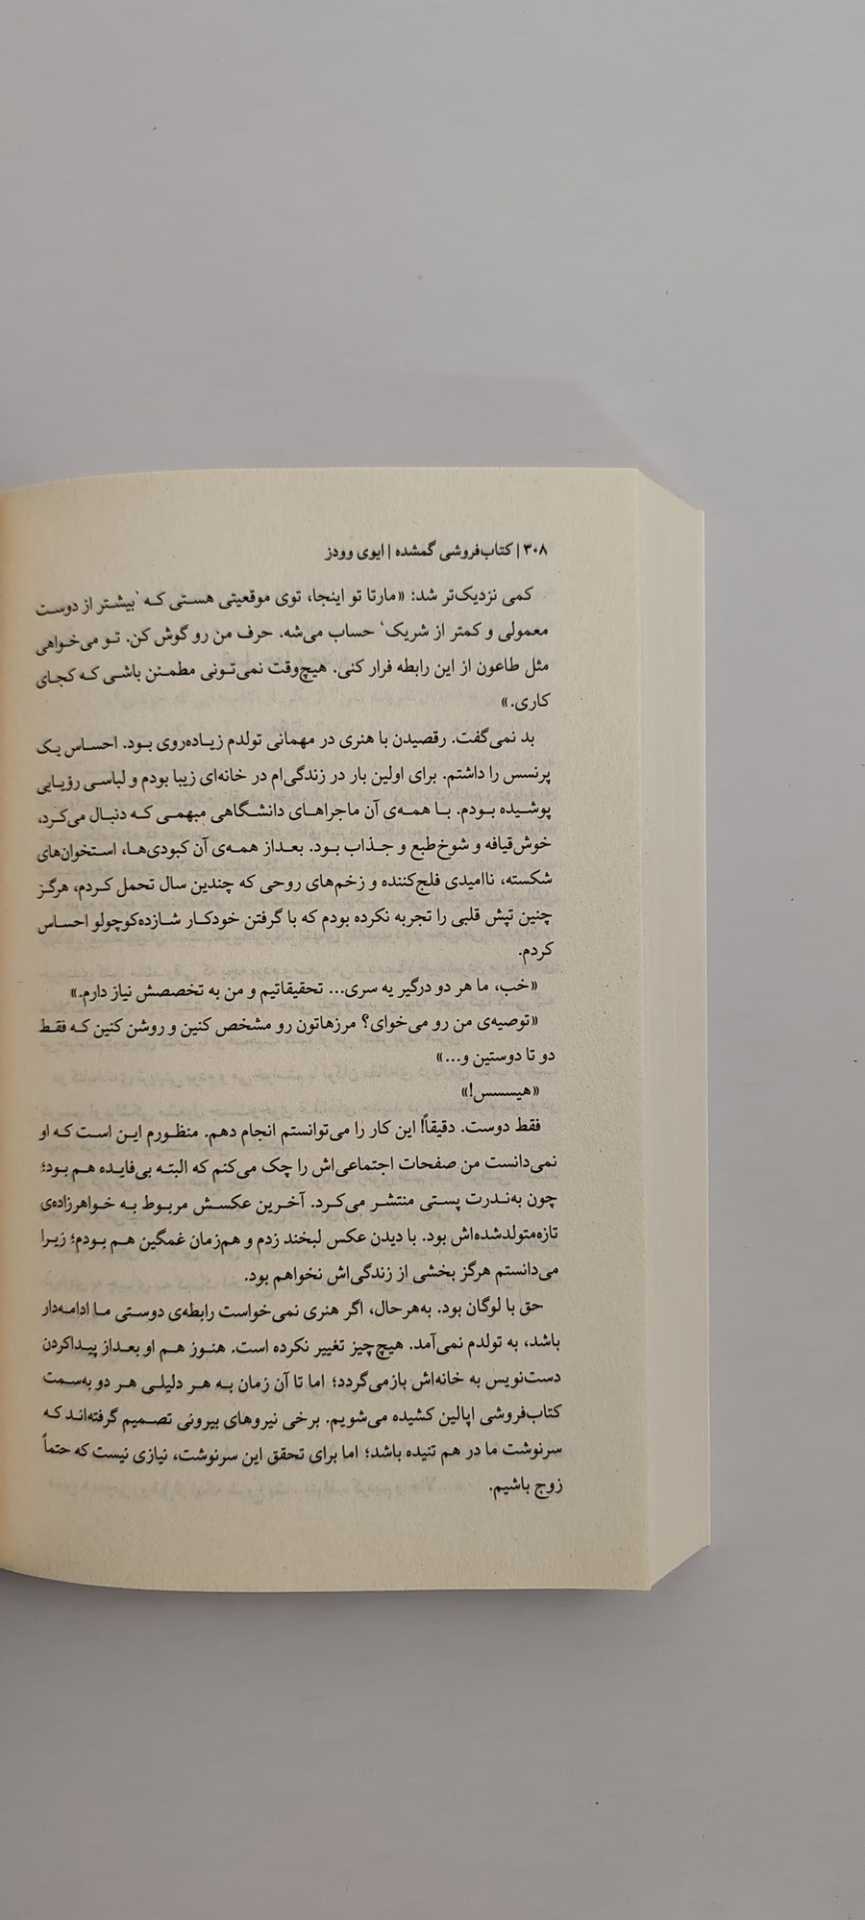 ۳۰۸ | کتاب‌فروشی گمشده | ایوی وودز
کمی نزدیک‌تر شد: «مارتا تو اینجا، توی موقعیتی هستی که 'بیشتر از دوست
معمولی و کمتر از شریک' حساب می‌شه. حرف من رو گوش کن. تو می‌خواهی
مثل طاعون از این رابطه فرار کنی. هیچ‌وقت نمی‌تونی مطمئن باشی که کجای
کاری.»
بد نمی‌گفت. رقصیدن با هنری در مهمانی تولدم زیاده‌روی بود. احساس یک
پرنسس را داشتم. برای اولین بار در زندگی‌ام در خانه‌ای زیبا بودم و لباسی رؤیایی
پوشیده بودم. با همه‌ی آن ماجراهای دانشگاهی مبهمی که دنبال می‌کرد،
خوش‌قیافه و شوخ‌طبع و جذاب بود. بعداز همه‌ی آن کبودی‌ها، استخوان‌های
شکسته، ناامیدی فلج‌کننده و زخم‌های روحی که چندین سال تحمل کردم، هرگز
چنین تپش قلبی را تجربه نکرده بودم که با گرفتن خودکار شازده‌کوچولو احساس
کردم.
«خب، ما هر دو درگیر یه سری... تحقیقاتیم و من به تخصصش نیاز دارم.»
«توصیه‌ی من رو می‌خوای؟ مرزهاتون رو مشخص کنین و روشن کنین که فقط
دو تا دوستین و...»
«هیسسس!»
فقط دوست. دقیقاً! این کار را می‌توانستم انجام دهم. منظورم این است که او
نمی‌دانست من صفحات اجتماعی‌اش را چک می‌کنم که البته بی‌فایده هم بود؛
چون به‌ندرت پستی منتشر می‌کرد. آخرین عکسش مربوط به خواهرزاده‌ی
تازه‌متولدشده‌اش بود. با دیدن عکس لبخند زدم و هم‌زمان غمگین هم بودم؛ زیرا
می‌دانستم هرگز بخشی از زندگی‌اش نخواهم بود.
حق با لوگان بود. به‌هرحال، اگر هنری نمی‌خواست رابطه‌ی دوستی ما ادامه‌دار
باشد، به تولدم نمی‌آمد. هیچ‌چیز تغییر نکرده است. هنوز هم او بعداز پیداکردن
دست‌نویس به خانه‌اش بازمی‌گردد؛ اما تا آن زمان به هر دلیلی هر دو به‌سمت
کتاب‌فروشی اپالین کشیده می‌شویم. برخی نیروهای بیرونی تصمیم گرفته‌اند که
سرنوشت ما در هم تنیده باشد؛ اما برای تحقق این سرنوشت، نیازی نیست که حتماً
زوج باشیم.